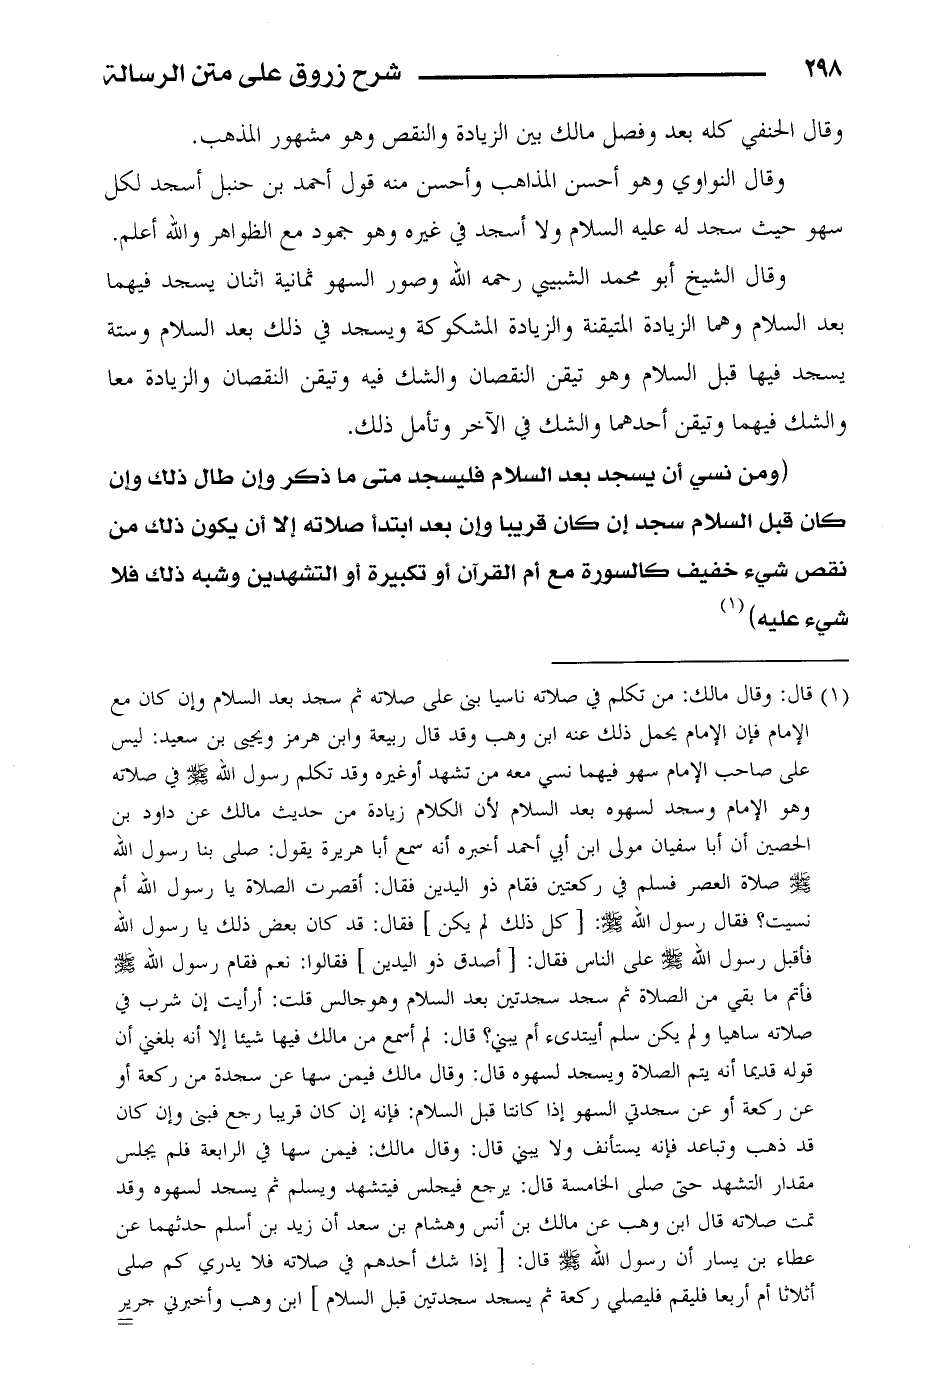 ٢٩٨ شرح زروق على متن الرسالة
وقال الحنفي كله بعد وفصل مالك بين الزيادة والنقص وهو مشهور المذهب.
وقال النواوي وهو أحسن المذاهب وأحسن منه قول أحمد بن حنبل أسجد لكل
سهو حيث سجد له عليه السلام ولا أسجد في غيره وهو جمود مع الظواهر والله أعلم.
وقال الشيخ أبو محمد الشبيبي رحمه الله وصور السهو ثمانية اثنان يسجد فيهما
بعد السلام وهما الزيادة المتيقنة والزيادة المشكوكة ويسجد في ذلك بعد السلام وستة
يسجد فيها قبل السلام وهو تيقن النقصان والشك فيه وتيقن النقصان والزيادة معا
والشك فيهما وتيقن أحدهما والشك في الآخر وتأمل ذلك.
(ومن نسي أن يسجد بعد السلام فليسجد متى ما ذكر وإن طال ذلك وإن
كان قبل السلام سجد إن كان قريبا وإن بعد ابتدأ صلاته إلا أن يكون ذلك من
نقص شيء خفيف كالسورة مع أم القرآن أو تكبيرة أو التشهدين وشبه ذلك فلا
شيء عليه)(١)
(١) قال: وقال مالك: من تكلم في صلاته ناسيا بنى على صلاته ثم سجد بعد السلام وإن كان مع
الإمام فإن الإمام يحمل ذلك عنه ابن وهب وقد قال ربيعة وابن هرمز ويحيى بن سعيد: ليس
على صاحب الإمام سهو فيهما نسي معه من تشهد أوغيره وقد تكلم رسول الله ﷺ في صلاته
وهو الإمام وسجد لسهوه بعد السلام لأن الكلام زيادة من حديث مالك عن داود بن
الحصين أن أبا سفيان مولى ابن أبي أحمد أخبره أنه سمع أبا هريرة يقول: صلى بنا رسول الله
ﷺ صلاة العصر فسلم في ركعتين فقام ذو اليدين فقال: أقصرت الصلاة يا رسول الله أم
نسيت؟ فقال رسول الله ﷺ: [ كل ذلك لم يكن ] فقال: قد كان بعض ذلك يا رسول الله
فأقبل رسول الله ﷺ على الناس فقال: [ أصدق ذو اليدين ] فقالوا: نعم فقام رسول الله ﷺ
فأتم ما بقي من الصلاة ثم سجد سجدتين بعد السلام وهوجالس قلت: أرأيت إن شرب في
صلاته ساهيا ولم يكن سلم أيبتدىء أم يبني؟ قال: لم أسمع من مالك فيها شيئا إلا أنه بلغني أن
قوله قديما أنه يتم الصلاة ويسجد لسهوه قال: وقال مالك فيمن سها عن سجدة من ركعة أو
عن ركعة أو عن سجدتي السهو إذا كانتا قبل السلام: فإنه إن كان قريبا رجع فبنى وإن كان
قد ذهب وتباعد فإنه يستأنف ولا يبني قال: وقال مالك: فيمن سها في الرابعة فلم يجلس
مقدار التشهد حتى صلى الخامسة قال: يرجع فيجلس فيتشهد ويسلم ثم يسجد لسهوه وقد
تمت صلاته قال ابن وهب عن مالك بن أنس وهشام بن سعد أن زيد بن أسلم حدثهما عن
عطاء بن يسار أن رسول الله ﷺ قال: [ إذا شك أحدهم في صلاته فلا يدري كم صلى
أثلاثا أم أربعا فليقم فليصلي ركعة ثم يسجد سجدتين قبل السلام ] ابن وهب وأخبرني جرير
=